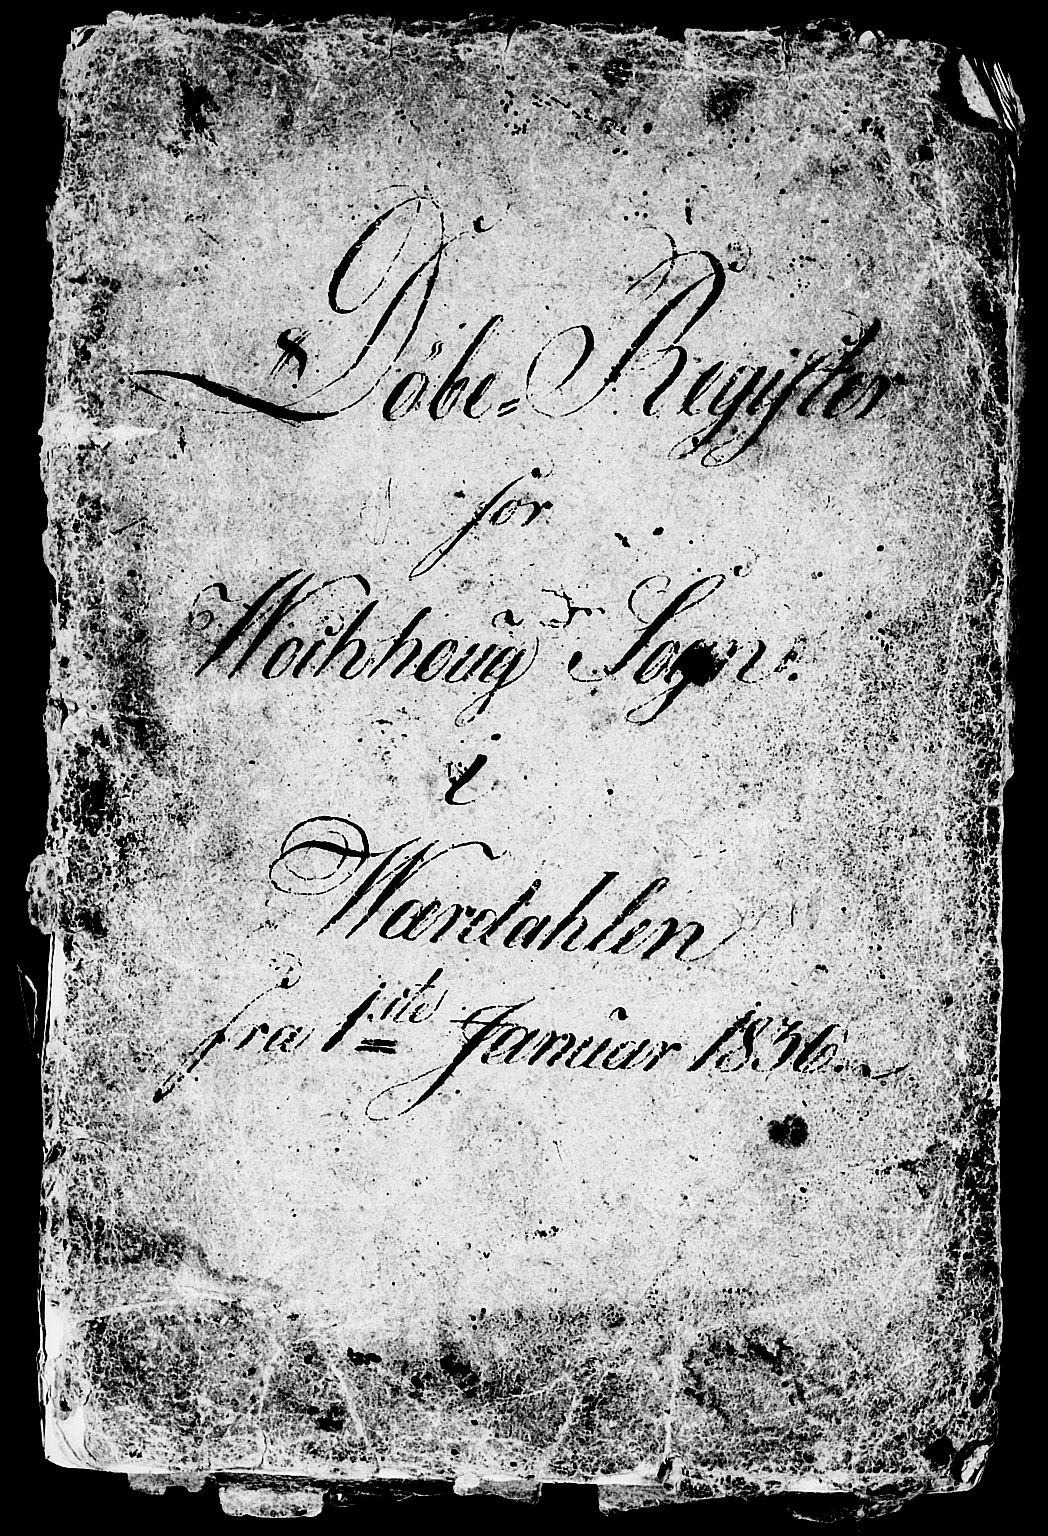 Döbe= Register
for
Woihhoug Sogn.
i
Wærdahlen
fra 1ste Januar 1836.